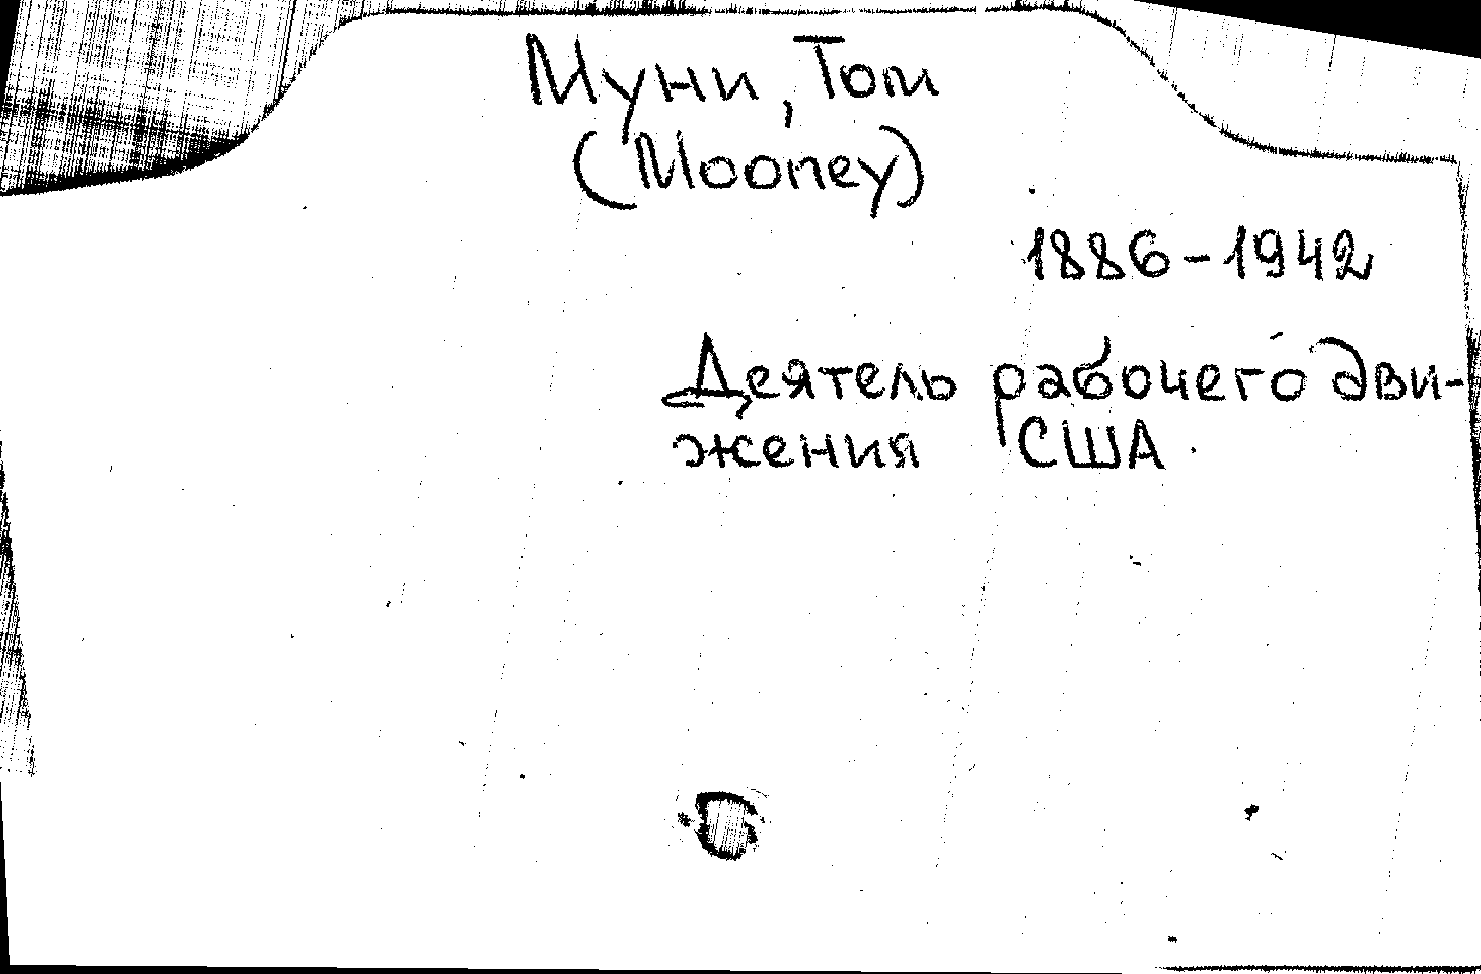 Муни, Том
(Mooney)
1886-1942
Деятель рабочего дви-
жения США.